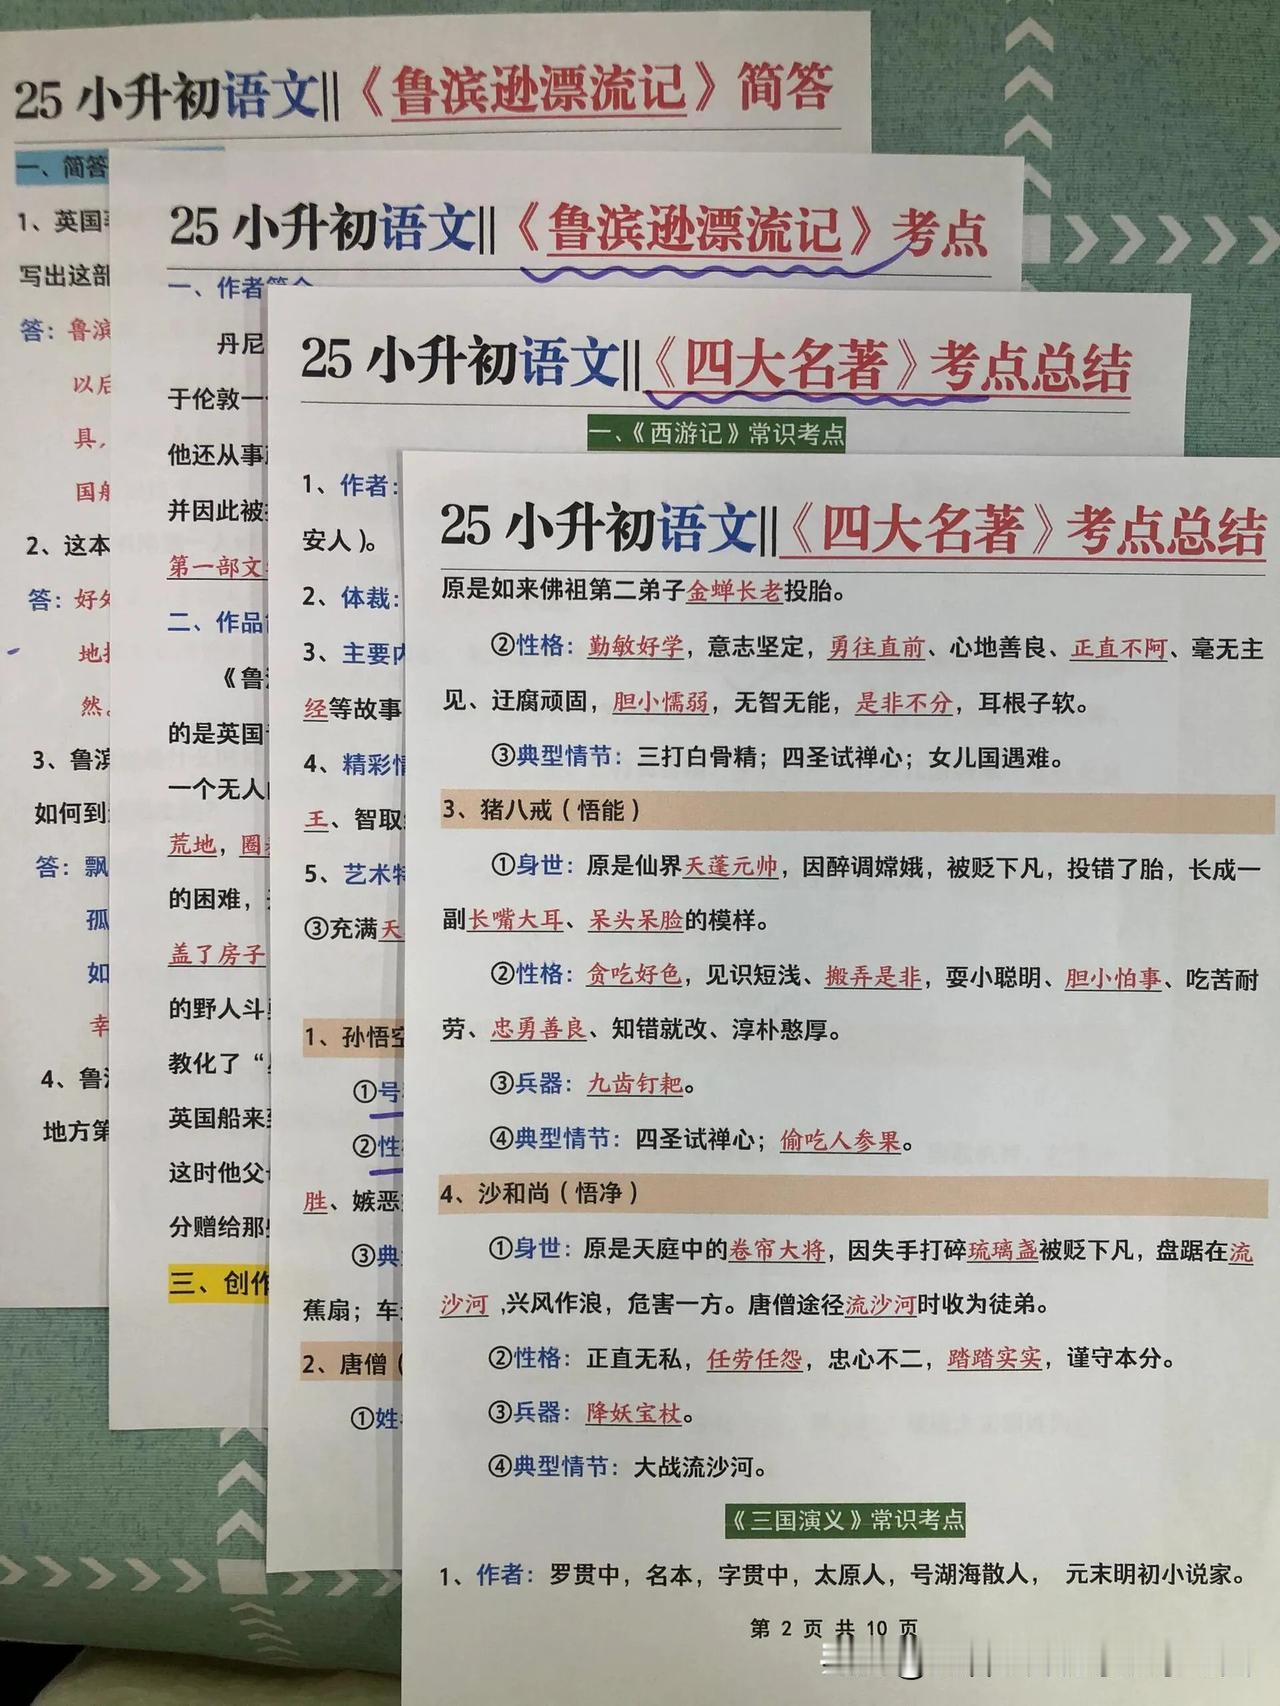 25 小升初语文||《鲁滨逊漂流记》简答
一、简答
1、英国
写出这部
答：鲁滨
以后
具，
国船
2、这本
答：好处
地
然。
3、鲁滨
如何到
答：飘
孤
如
幸
4、鲁
地方第
25 小升初语文||《鲁滨逊漂流记》考点
一、作者简介
丹尼
于伦敦一
他还从事
并因此被
第一部文
二、作品
《鲁
的是英国
一个无人
荒地，圈
的困难，
盖了房子
的野人斗
教化了“
英国船来
这时他父
分赠给那
三、创作
25 小升初语文||《四大名著》考点总结
一、《西游记》常识考点
1、作者：
安人）。
2、体裁：
3、主要内
经等故事
4、精彩情
王、智取
5、艺术特
③充满天
1、孙悟空
①号
②性
胜、嫉恶
③典
蕉扇；车
2、唐僧（
①姓
25 小升初语文||《四大名著》考点总结
原是如来佛祖第二弟子金蝉长老投胎。
②性格：勤敏好学，意志坚定，勇往直前、心地善良、正直不阿、毫无主
见、迂腐顽固，胆小懦弱，无智无能，是非不分，耳根子软。
③典型情节：三打白骨精；四圣试禅心；女儿国遇难。
3、猪八戒（悟能）
①身世：原是仙界天蓬元帅，因醉调嫦娥，被贬下凡，投错了胎，长成一
副长嘴大耳、呆头呆脸的模样。
②性格：贪吃好色，见识短浅、搬弄是非，耍小聪明、胆小怕事、吃苦耐
劳、忠勇善良、知错就改、淳朴憨厚。
③兵器：九齿钉耙。
④典型情节：四圣试禅心；偷吃人参果。
4、沙和尚（悟净）
①身世：原是天庭中的卷帘大将，因失手打碎琉璃盏被贬下凡，盘踞在流
沙河 ,兴风作浪，危害一方。唐僧途径流沙河时收为徒弟。
②性格：正直无私，任劳任怨，忠心不二，踏踏实实，谨守本分。
③兵器：降妖宝杖。
④典型情节：大战流沙河。
《三国演义》常识考点
1、作者：罗贯中，名本，字贯中，太原人，号湖海散人， 元末明初小说家。
第 2 页 共 10 页